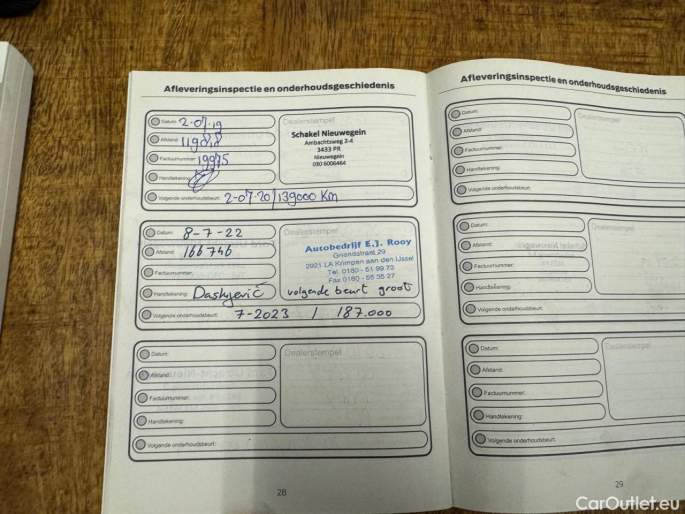 Afleveringsinspectie en onderhoudsgeschiedenis
Datum: 2-07-19
Dealerstempel
Afstand:
Schakel Nieuwegein
Ambachtsweg 2-4
3433 PR
Nieuwegein
030 6006464
Factuurnummer: 19975
Handtekening:
Volgende onderhoudsbeurt: 2-07-20/139000 Km
Datum: 8-7-22
Dealerstempel
Afstand: 166746
Autobedrijf E.J. Rooy
Griendstraat 29
2921 LA Krimpen aan den IJssel
Tel. 0180 - 51 99 73
Fax 0180 - 55 35 27
Factuurnummer:
Handtekening:
volgende beurt groot
Volgende onderhoudsbeurt: 7-2023 / 187.000
Datum:
Dealerstempel
Afstand:
Factuurnummer:
Handtekening:
Volgende onderhoudsbeurt:
28
Afleveringsinspectie en onderhoudsgeschiedenis
Datum:
Dealerstempel
Afstand:
Factuurnummer:
Handtekening:
Volgende onderhoudsbeurt:
Datum:
Dealerstempel
Afstand:
Factuurnummer:
Handtekening:
Volgende onderhoudsbeurt:
Datum:
Dealerstempel
Afstand:
Factuurnummer:
Handtekening:
Volgende onderhoudsbeurt:
29
CarOutlet.eu